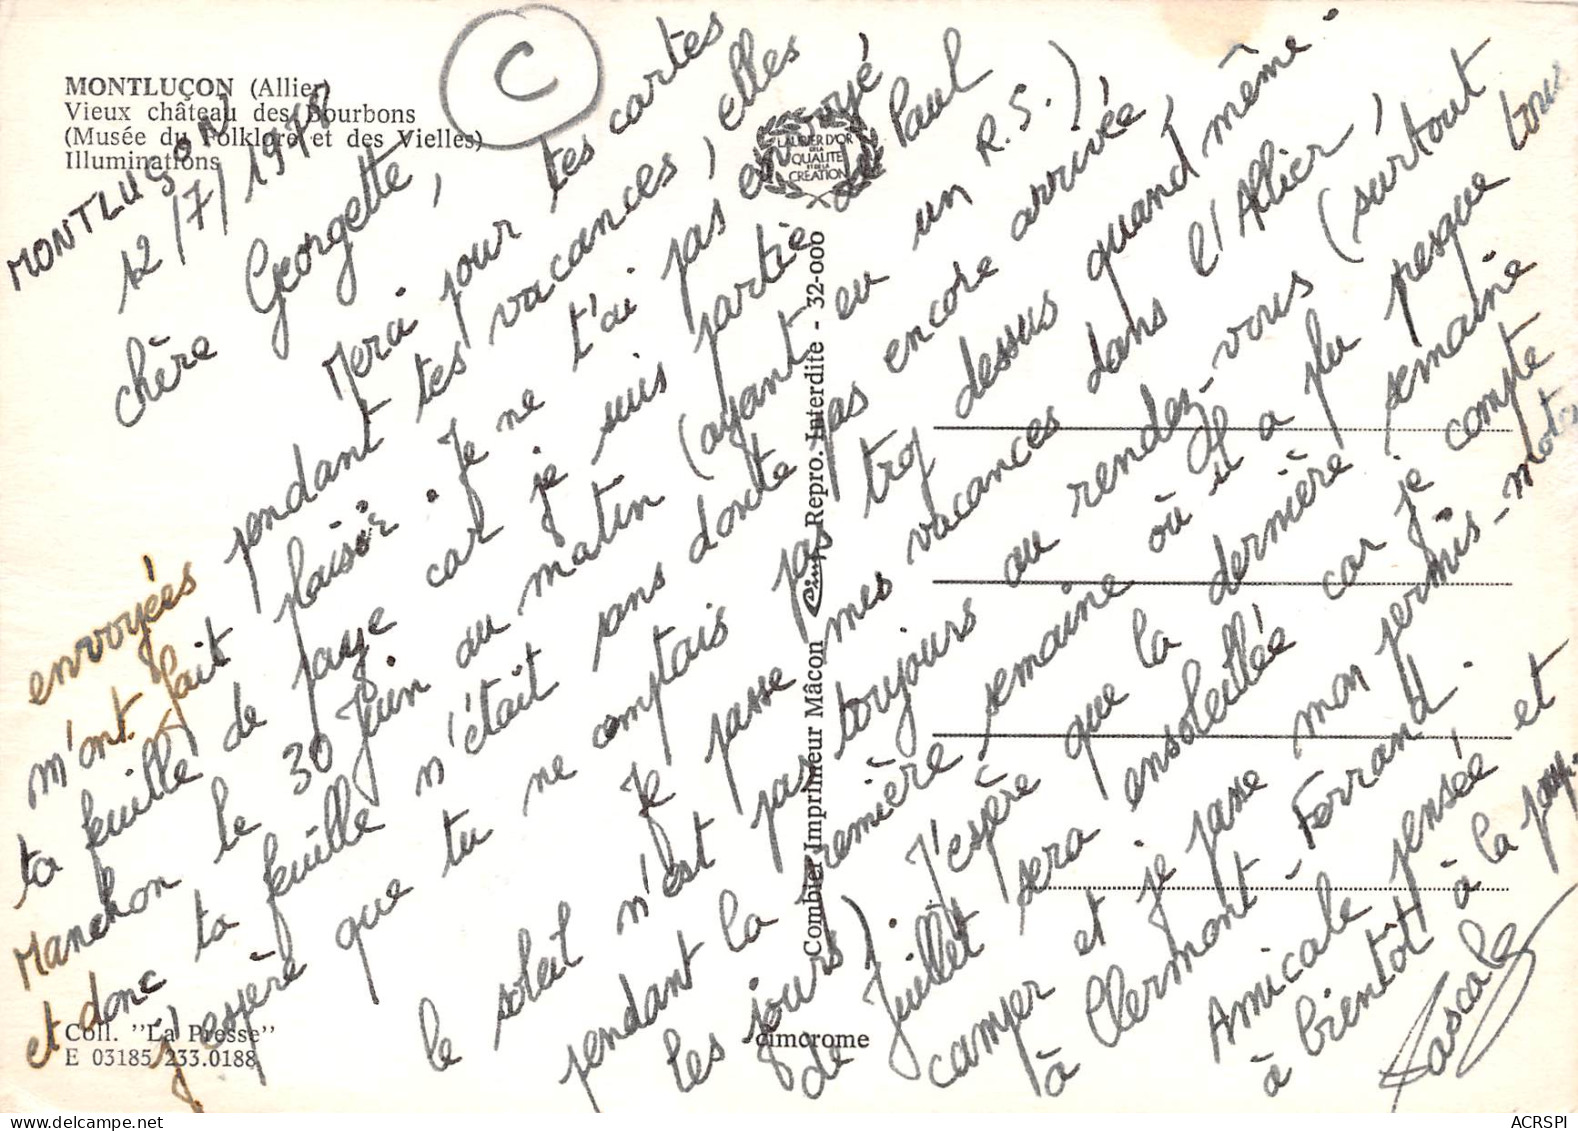 MONTLUÇON (Allier)
Vieux château des Bourbons
(Musée du Folklore et des Vielles)
Illuminations
C
LAURIER D'OR
DE LA
QUALITE
ET DE LA
CREATION
MONTLUÇON
12/7/197
chère Georgette,
Merci pour tes cartes
envoyées pendant tes vacances, elles
m'ont fait plaisir. Je ne t'ai pas envoyé
ta feuille de paye car je suis partie de Paul
Manchon le 30 Juin au matin (ayant eu un R.S.)
et donc ta feuille n'était sans doute pas encore arrivée,
j'espère que tu ne comptais pas trop dessus quand même.
Je passe mes vacances dans l'Allier,
le soleil n'est pas toujours au rendez-vous (surtout
pendant la première semaine où il a plu presque tous
les jours). J'espère que la dernière semaine
de Juillet sera ensoleillée car je compte
camper et je passe mon permis-moto
à Clermont-Ferrand.
Amicale pensée et
à bientôt à la
Pascale
Combier Imprimeur Mâcon Cim Repro. Interdite - 32-000
Coll. "La Presse"
E 03185/233.0188
cimcrome
ACRSPI